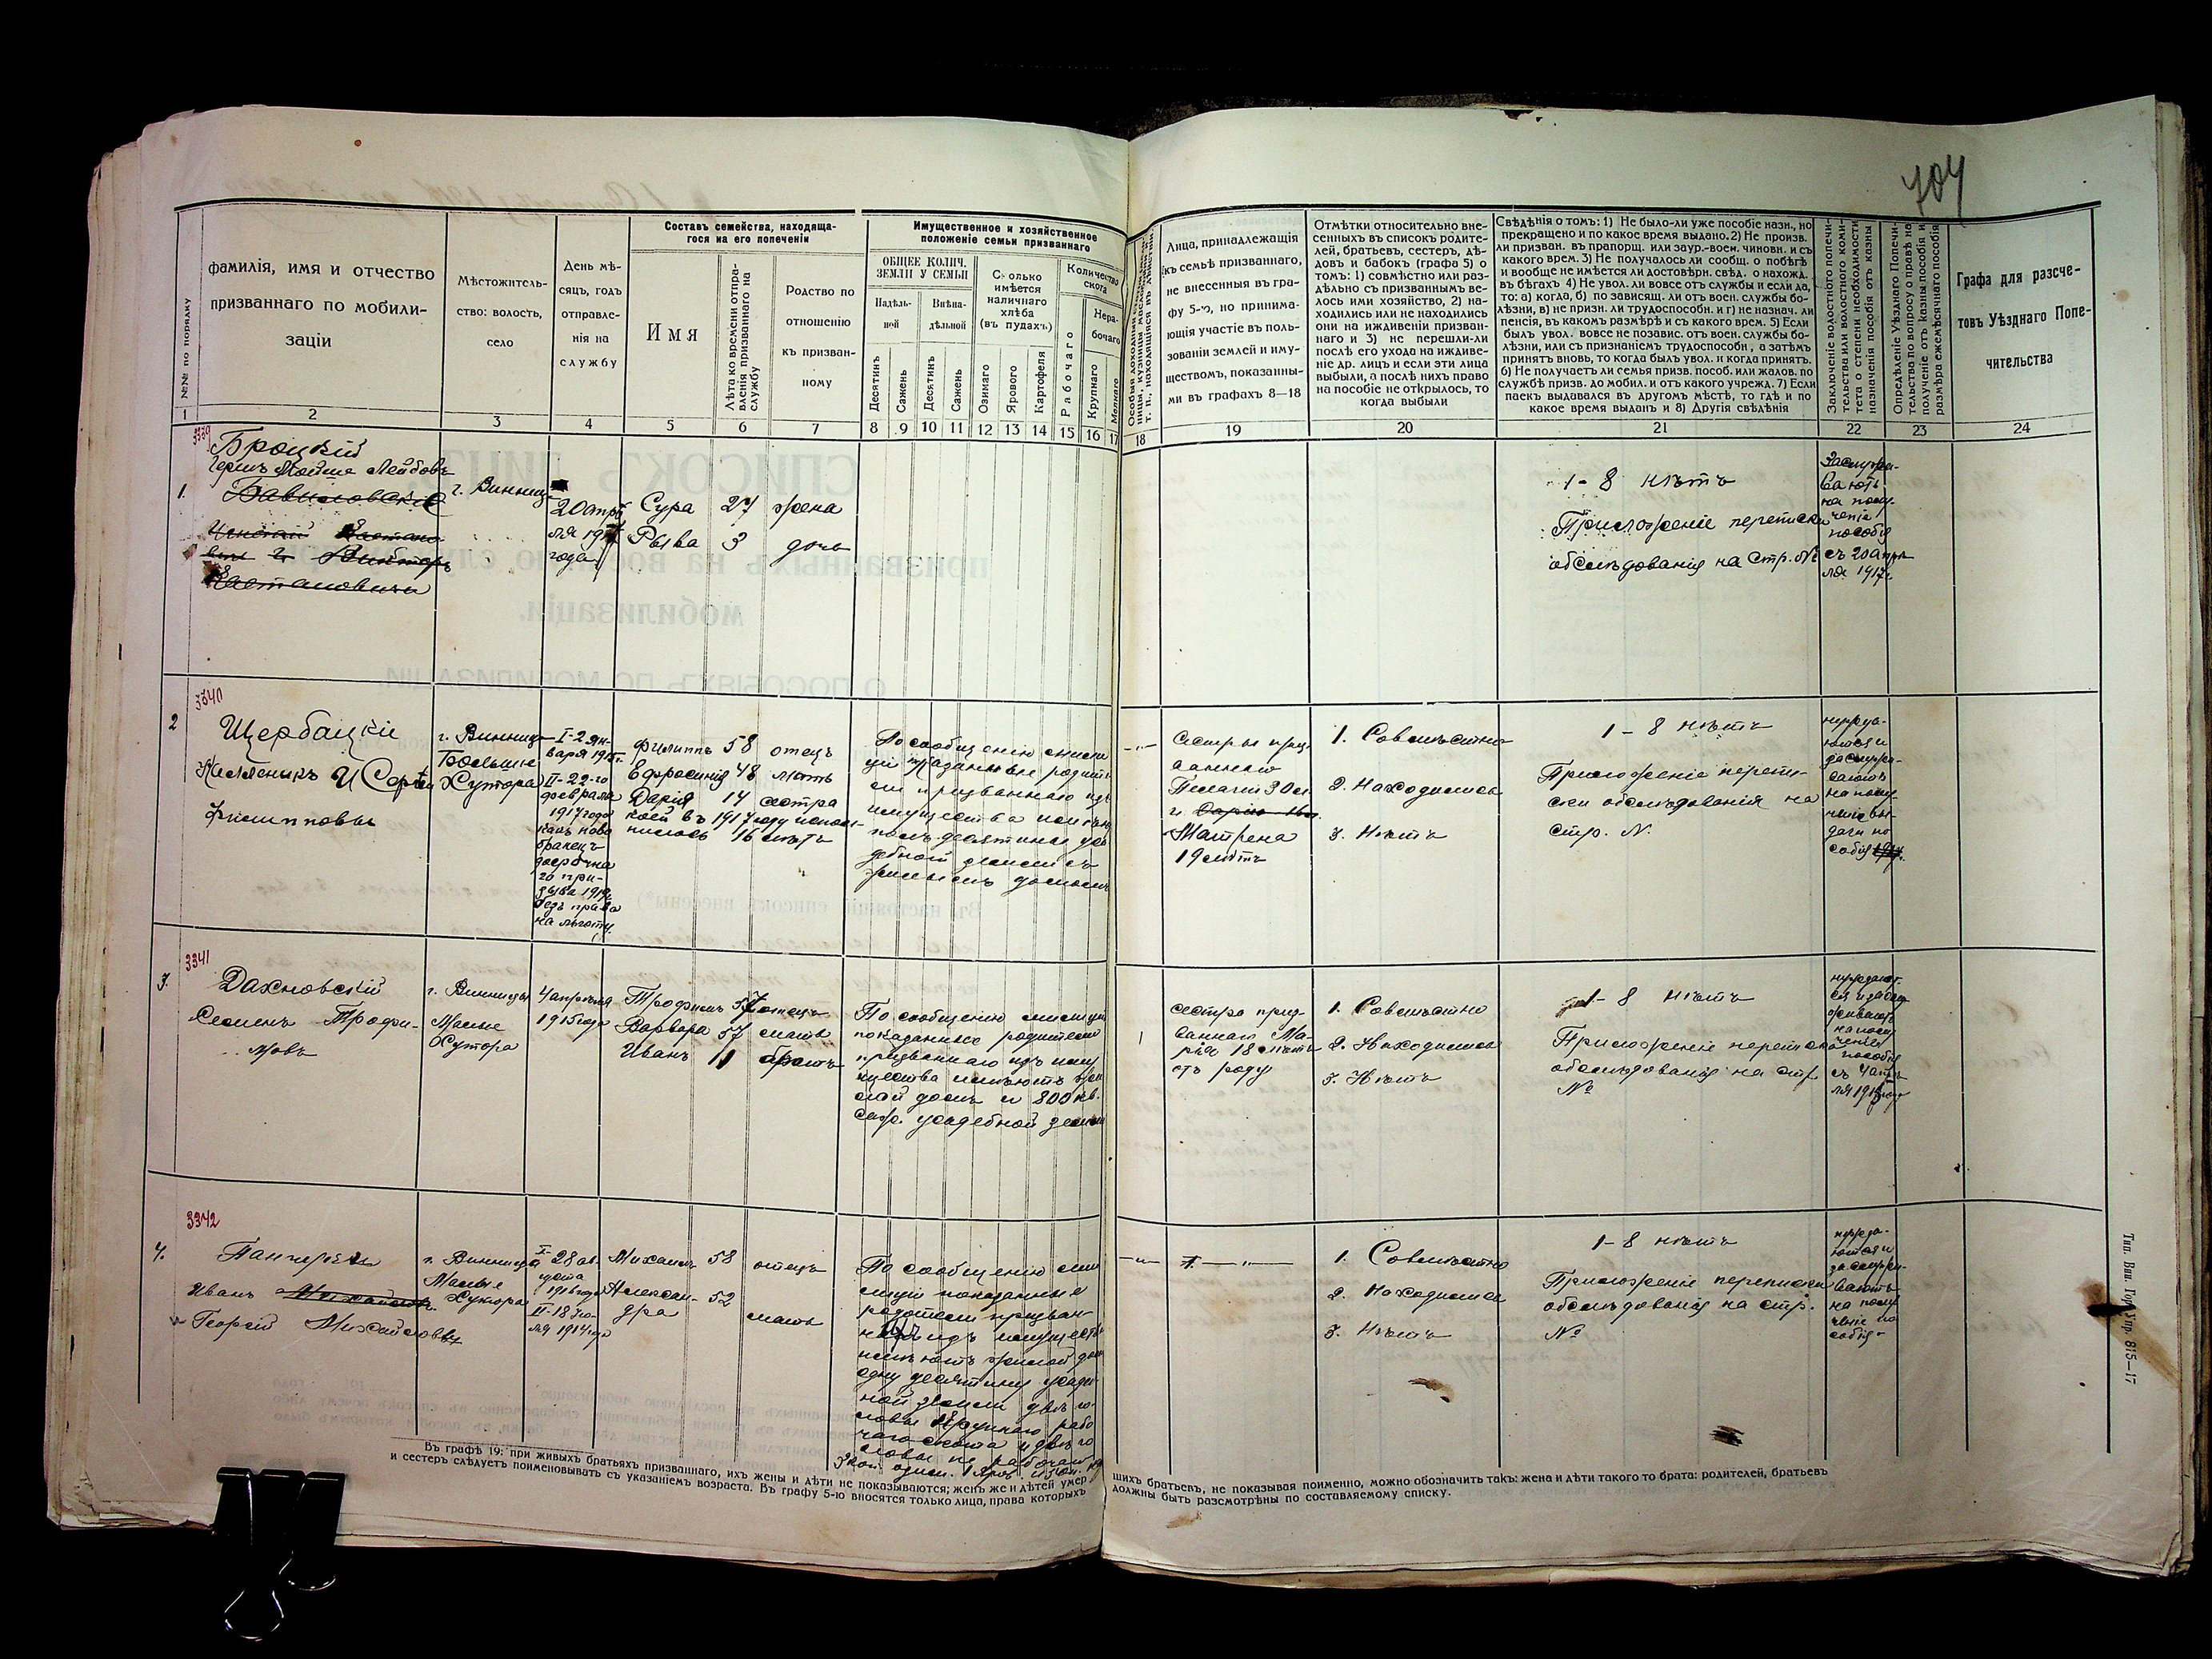 704
№№ по порядку
фамилія, имя и отчество
призваннаго по мобили-
заціи
Мѣстожитель-
ство: волость,
село
День мѣ-
сяцъ, годъ
отправле-
нія на
службу
Составъ семейства, находяща-
гося на его попеченіи
Имя
Лѣта ко времени отпра-
вленія призваннаго на
службу
Родство по
отношенію
къ призван-
ному
Имущественное и хозяйственное
положеніе семьи призваннаго
ОБЩЕЕ КОЛИЧ.
ЗЕМЛИ У СЕМЬИ
Надѣль-
ной
Внѣна-
дѣльной
Десятинъ
Сажень
Десятинъ
Сажень
Сколько
имѣется
наличнаго
хлѣба
(въ пудахъ)
Озимаго
Ярового
Картофеля
Количество
скота
Рабочаго
Нера-
бочаго
Крупнаго
Мелкаго
Лица, принадлежащія
къ семьѣ призваннаго,
не внесенныя въ гра-
фу 5-ю, но принима-
ющія участіе въ поль-
зованіи землей и иму-
ществомъ, показанны-
ми въ графахъ 8—18
Отмѣтки относительно вне-
сенныхъ въ списокъ родите-
лей, братьевъ, сестеръ, дѣ-
довъ и бабокъ (графа 5) о
томъ: 1) совмѣстно или раз-
дѣльно съ призваннымъ ве-
лось ими хозяйство, 2) на-
ходились или не находились
они на иждивеніи призван-
наго и 3) не перешли-ли
послѣ его ухода на иждиве-
ніе др. лицъ и если эти лица
выбыли, а послѣ нихъ право
на пособіе не открылось, то
когда выбыли
Свѣдѣнія о томъ: 1) Не было-ли уже пособіе назн., но
прекращено и по какое время выдано. 2) Не произв.
ли призван. въ прапорщ. или заур.-воен. чиновн. и съ
какого врем. 3) Не получалось ли сообщ. о побѣгѣ
и вообще не имѣется ли достовѣрн. свѣд. о нахожд.
въ бѣгахъ 4) Не увол. ли вовсе отъ службы и если да,
то: а) когда, б) по зависящ. ли отъ воен. службы бо-
лѣзни, в) не призн. ли трудоспособн. и г) не назнач. ли
пенсія, въ какомъ размѣрѣ и съ какого врем. 5) Если
былъ увол. вовсе не позавис. отъ воен. службы бо-
лѣзни, или съ признаніемъ трудоспособн, а затѣмъ
принятъ вновь, то когда былъ увол. и когда принятъ.
6) Не получаетъ ли семья призв. пособ. или жалов. по
службѣ призв. до мобил. и отъ какого учрежд. 7) Если
паекъ выдавался въ другомъ мѣстѣ, то гдѣ и по
какое время выданъ и 8) Другія свѣдѣнія
Заключеніе волостного попечи-
тельства или волостного коми-
тета о степени необходимости
назначенія пособія отъ казны
Опредѣленіе Уѣзднаго Попечи-
тельства по вопросу о правѣ на
полученіе отъ казны пособія и
размѣра ежемѣсячнаго пособія
Графа для разсче-
товъ Уѣзднаго Попе-
чительства
1 2 3 4 5 6 7 8 9 10 11 12 13 14 15 16 17 18 19 20 21 22 23 24
3339
1.
Броцкій
Герсшъ Мойше Лейбовъ
г. Винниц
20 апрѣ
ля 1917
года
Сура 27 жена
Рыва 3 дочь
1-8 нѣтъ
Приложеніе переписки
обслѣдованія на Стр. №
Заслужи-
ваютъ
на полу-
ченіе
пособія
съ 20 апрѣ
ля 1917г
3340
2
Щербацкій
Филипповы
г. Винница
Большіе
Хутора
I-2 Ян-
варя 1915г.
II-22-го
февраля
1917 года
какъ ново
бранецъ
досрочна
го при-
зыва 1919г.
безъ права
на льготу.
Филиппъ 58 отецъ
Ефросинія 48 мать
Дарія 14 сестра
коей въ 1917 году испол-
нилось 16 лѣтъ
По сообщенію милиціи
указанные родите-
ли призваннаго изъ
имущества имѣютъ
полъ десятины уса
дебной земли съ
жилымъ домомъ
—"—
Сестры приз
ваннаго
Пелагія 30 л.
и
Матрена
19 лѣтъ
1. Совмѣстно
2. Находились
3. Нѣтъ
1-8 нѣтъ
Приложеніе перепи-
ски обслѣдованія на
стр. №.
нужда-
ются и
заслужи-
ваютъ
на полу-
ченіе вы-
дачи по
собія
3341
3.
Дахновскій
Семенъ Трофи-
мовъ
г. Винница
Малые
Хутора
4 апрѣля
1915 года
Трофимъ 57 отецъ
Варвара 57 мать
Иванъ 11 братъ
По сообщенію милиціи
показанные родители
призваннаго изъ иму
щества имѣютъ жи
лой домъ и 800 кв.
саж. усадебной земли
сестра приз-
ваннаго Ма-
рія 18 лѣтъ
отъ роду
1. Совмѣстно
2. Находились
3. Нѣтъ
1-8 нѣтъ
Приложеніе переписки
обслѣдованія на стр.
№
нуждают-
ся и заслу-
живаютъ
на полу-
ченія
пособія
съ 4 апрѣ
ля 1915 году
3342
4.
Иванъ
Георгій Михайловы
г. Винница
Малые
Хутора
I-28 ав-
густа
1916 года
II-18 Ію-
ля 1914 года
Михаилъ 58 отецъ
Алексан-
дра 52 мать
По сообщенію ми
лиціи показанные
родители призван-
ныхъ изъ имущества
имѣютъ жилой домъ
одну десятину усадеб-
ной земли двѣ го-
ловы крупнаго рабо
чаго скота и двѣ го
ловы не рабочаго
—"— —"—
1. Совмѣстно
2. Находились
3. Нѣтъ
1-8 нѣтъ
Приложеніе переписки
обслѣдованія на стр.
№
нужда-
ются и
заслужи-
ваютъ
на полу-
ченіе по
собія
Въ графѣ 19: при живыхъ братьяхъ призваннаго, ихъ жены и дѣти не показываются; женъ же и дѣтей умер
шихъ братьевъ, не показывая поименно, можно обозначить такъ: жена и дѣти такого то брата: родителей, братьевъ
и сестеръ слѣдуетъ поименовывать съ указаніемъ возраста. Въ графу 5-ю вносятся только лица, права которыхъ
должны быть разсмотрѣны по составляемому списку.
Тип. Вин. Гор. Упр. 815—17